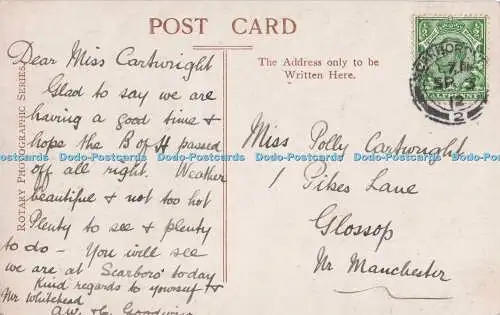 POST CARD
Dear Miss Cartwright
Glad to say we are
having a good time &
hope the B of H passed
off all right. Weather
beautiful & not too hot
Plenty to see & plenty
to do - You will see
we are at Scarboro' today
Kind regards to yourself &
Mr Whitehead
A.W. & C. Goodwin
ROTARY PHOTOGRAPHIC SERIES
The Address only to be
Written Here.
Miss Polly Cartwright
1 Pikes Lane
Glossop
Nr Manchester
SCARBOROUGH
SP 3
12
2
HALFPENNY
Dodo-Postcards Dodo-Postcards Dodo-Postcards Dodo-Postcards Dodo-Postcards Dodo-Postcards